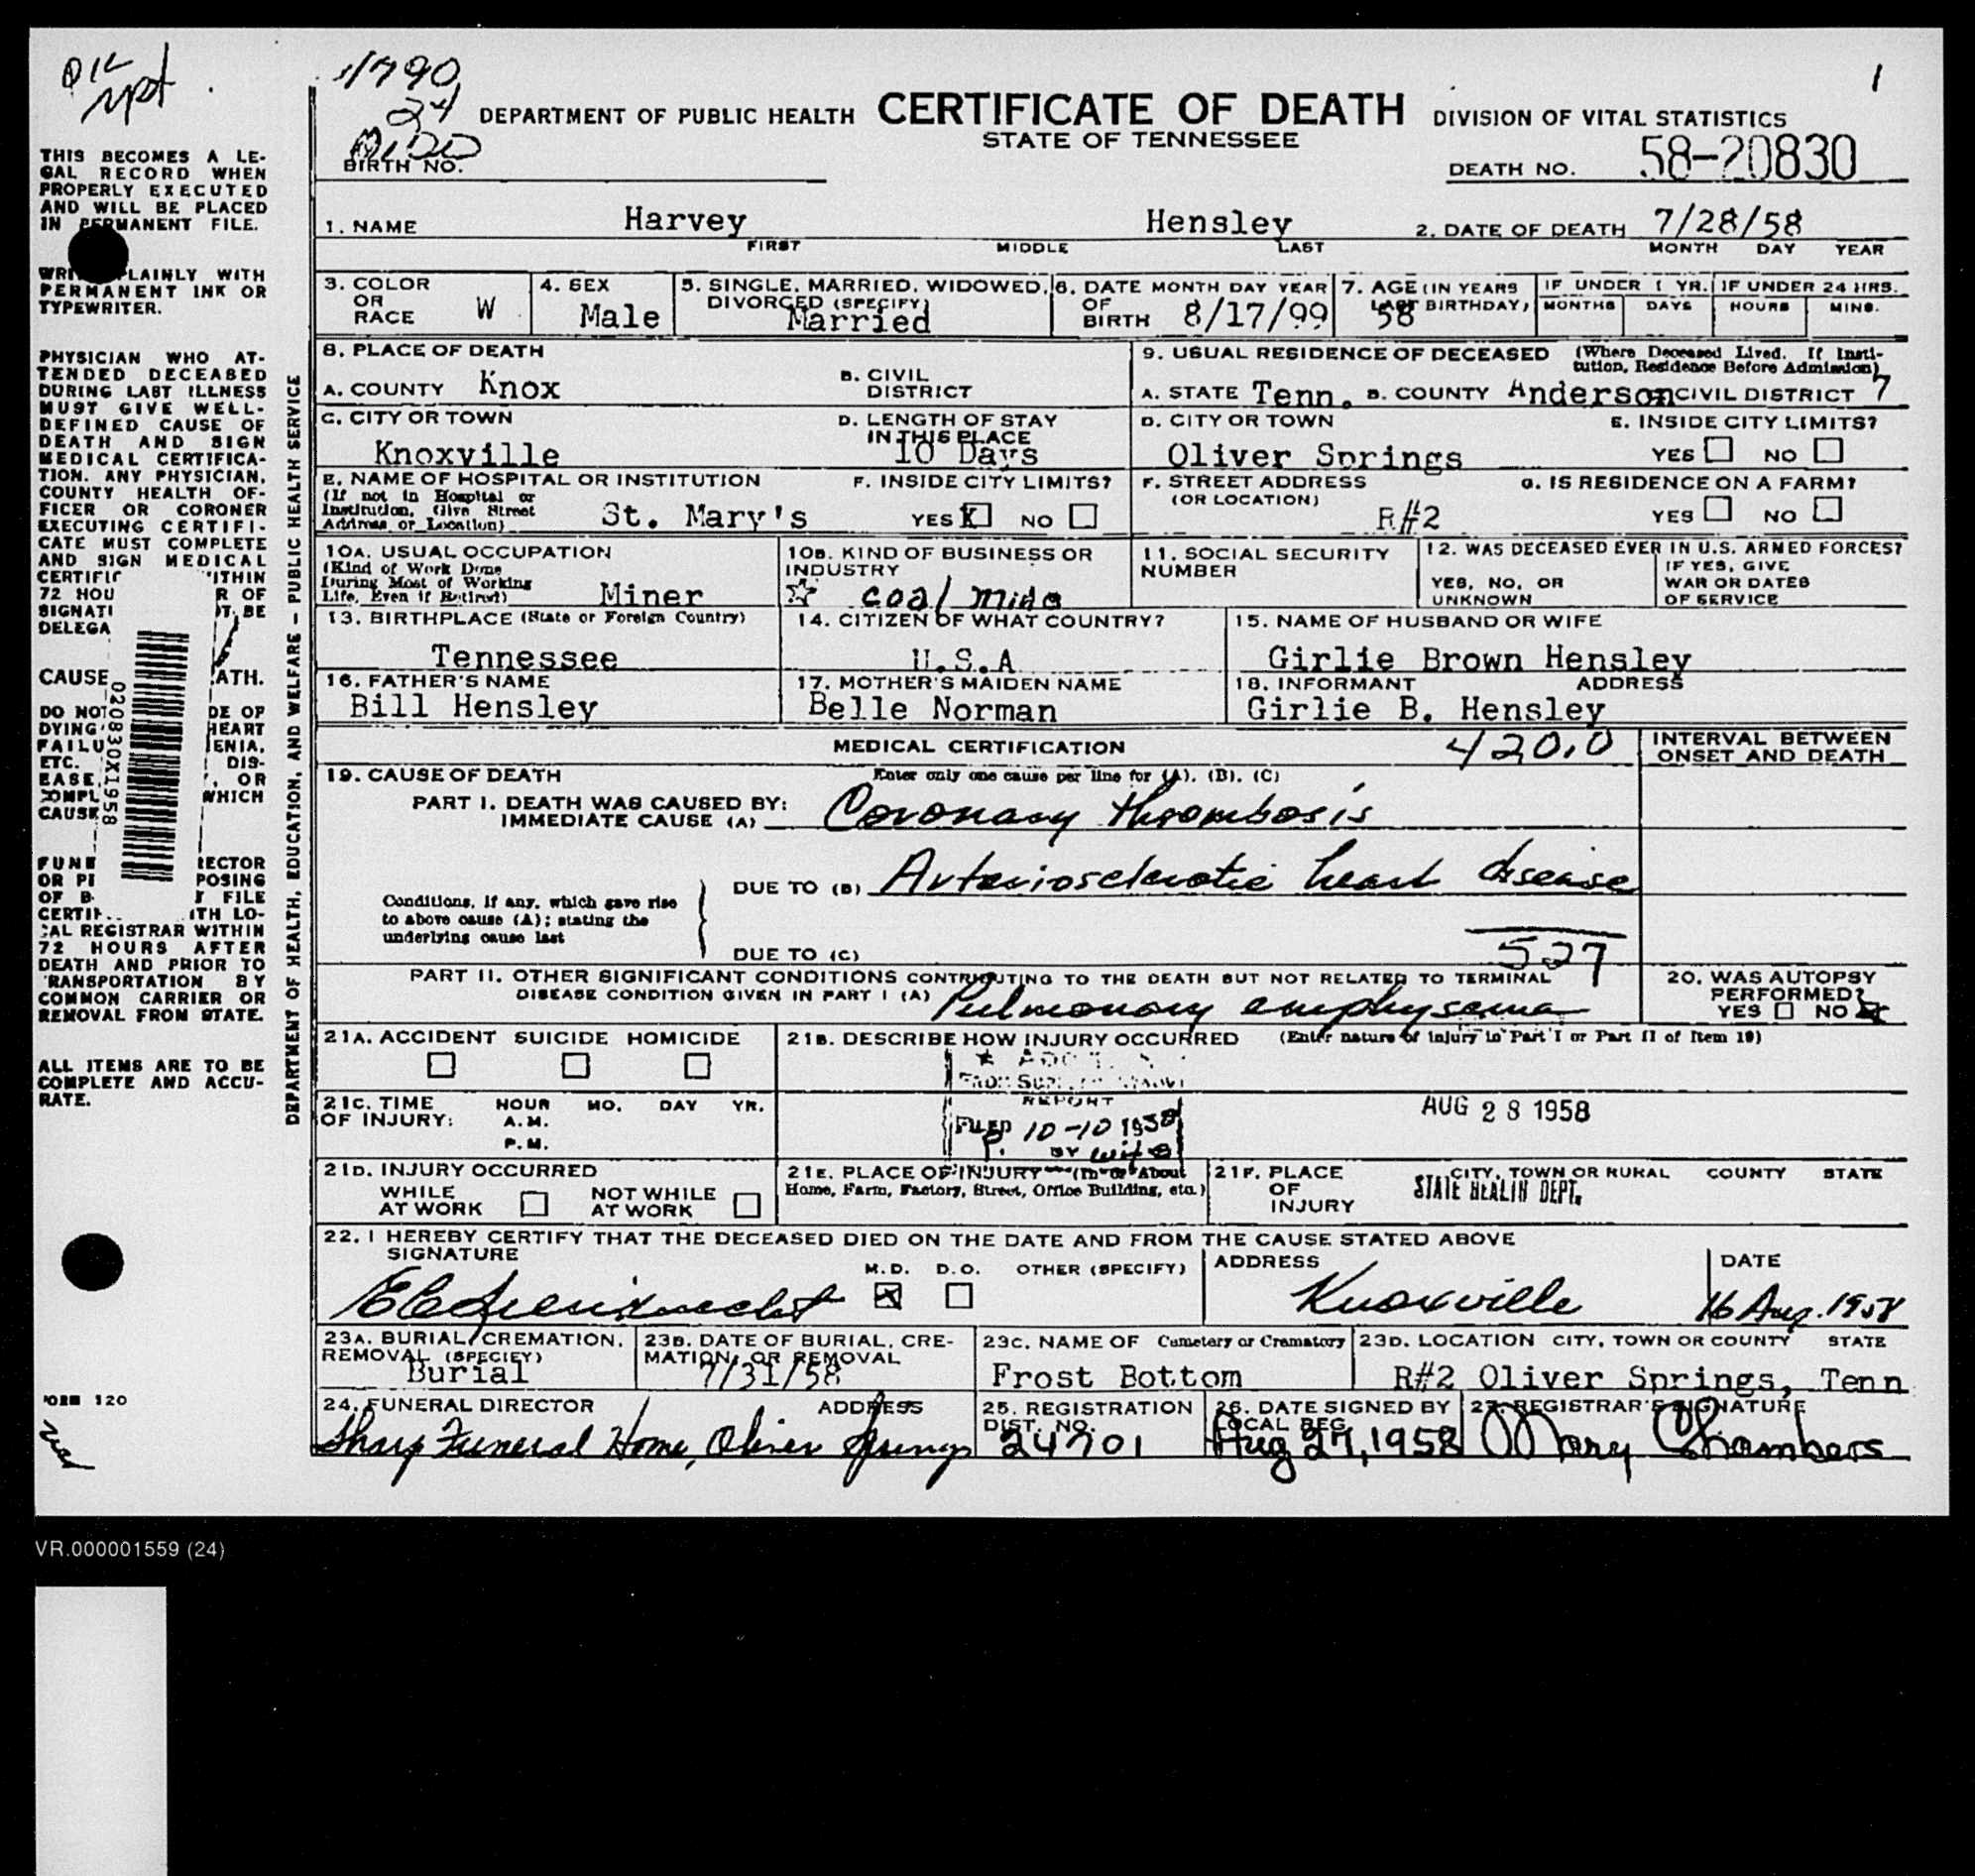 1
DEPARTMENT OF PUBLIC HEALTH CERTIFICATE OF DEATH DIVISION OF VITAL STATISTICS
STATE OF TENNESSEE
BIRTH NO.
DEATH NO. 58-20830
1. NAME Harvey Hensley 2. DATE OF DEATH 7/28/58
FIRST MIDDLE LAST MONTH DAY YEAR
3. COLOR OR RACE W
4. SEX Male
5. SINGLE, MARRIED, WIDOWED, DIVORCED (SPECIFY) Married
6. DATE OF BIRTH MONTH DAY YEAR 8/17/99
7. AGE (IN YEARS LAST BIRTHDAY) 58
IF UNDER 1 YR. MONTHS DAYS
IF UNDER 24 HRS. HOURS MINS.
8. PLACE OF DEATH
A. COUNTY Knox
B. CIVIL DISTRICT
C. CITY OR TOWN Knoxville
D. LENGTH OF STAY IN THIS PLACE 10 Days
E. NAME OF HOSPITAL OR INSTITUTION (If not in Hospital or Institution, Give Street Address or Location) St. Mary's
F. INSIDE CITY LIMITS? YES X NO
9. USUAL RESIDENCE OF DECEASED (Where Deceased Lived. If Institution, Residence Before Admission)
A. STATE Tenn. B. COUNTY Anderson CIVIL DISTRICT 7
D. CITY OR TOWN Oliver Springs
E. INSIDE CITY LIMITS? YES NO
F. STREET ADDRESS (OR LOCATION) R#2
G. IS RESIDENCE ON A FARM? YES NO
10A. USUAL OCCUPATION (Kind of Work Done During Most of Working Life, Even if Retired) Miner
10B. KIND OF BUSINESS OR INDUSTRY coal mine
11. SOCIAL SECURITY NUMBER
12. WAS DECEASED EVER IN U.S. ARMED FORCES?
YES, NO, OR UNKNOWN
IF YES, GIVE WAR OR DATES OF SERVICE
13. BIRTHPLACE (State or Foreign Country) Tennessee
14. CITIZEN OF WHAT COUNTRY? U.S.A
15. NAME OF HUSBAND OR WIFE Girlie Brown Hensley
16. FATHER'S NAME Bill Hensley
17. MOTHER'S MAIDEN NAME Belle Norman
18. INFORMANT ADDRESS Girlie B. Hensley
MEDICAL CERTIFICATION 420.0
INTERVAL BETWEEN ONSET AND DEATH
19. CAUSE OF DEATH Enter only one cause per line for (A), (B), (C)
PART I. DEATH WAS CAUSED BY:
IMMEDIATE CAUSE (A) Coronary thrombosis
DUE TO (B) Arteriosclerotic heart disease
Conditions, if any, which gave rise to above cause (A); stating the underlying cause last
DUE TO (C) 527
PART II. OTHER SIGNIFICANT CONDITIONS CONTRIBUTING TO THE DEATH BUT NOT RELATED TO TERMINAL
DISEASE CONDITION GIVEN IN PART I (A) Pulmonary emphysema
20. WAS AUTOPSY PERFORMED? YES NO X
21A. ACCIDENT SUICIDE HOMICIDE
21B. DESCRIBE HOW INJURY OCCURRED (Enter nature of injury in Part I or Part II of Item 19)
REPORT
FILED 10-10 1958
BY wife
AUG 28 1958
STATE HEALTH DEPT.
21C. TIME OF INJURY: HOUR MO. DAY YR.
A.M.
P.M.
21D. INJURY OCCURRED
WHILE AT WORK NOT WHILE AT WORK
21E. PLACE OF INJURY (In or About Home, Farm, Factory, Street, Office Building, etc.)
21F. PLACE OF INJURY CITY, TOWN OR RURAL COUNTY STATE
22. I HEREBY CERTIFY THAT THE DECEASED DIED ON THE DATE AND FROM THE CAUSE STATED ABOVE
SIGNATURE M.D. X D.O. OTHER (SPECIFY)
ADDRESS Knoxville
DATE 16 Aug. 1958
23A. BURIAL, CREMATION, REMOVAL (SPECIFY) Burial
23B. DATE OF BURIAL, CREMATION, OR REMOVAL 7/31/58
23C. NAME OF Cemetery or Crematory Frost Bottom
23D. LOCATION CITY, TOWN OR COUNTY STATE R#2 Oliver Springs, Tenn
24. FUNERAL DIRECTOR ADDRESS Sharp Funeral Home, Oliver Springs
25. REGISTRATION DIST. NO. 24701
26. DATE SIGNED BY LOCAL REG. Aug 27, 1958
27. REGISTRAR'S SIGNATURE Mary Chambers
THIS BECOMES A LE-
GAL RECORD WHEN
PROPERLY EXECUTED
AND WILL BE PLACED
IN PERMANENT FILE.
PLAINLY WITH
PERMANENT INK OR
TYPEWRITER.
PHYSICIAN WHO AT-
TENDED DECEASED
DURING LAST ILLNESS
MUST GIVE WELL-
DEFINED CAUSE OF
DEATH AND SIGN
MEDICAL CERTIFICA-
TION. ANY PHYSICIAN,
COUNTY HEALTH OF-
FICER OR CORONER
EXECUTING CERTIFI-
CATE MUST COMPLETE
AND SIGN MEDICAL
72 HOU R OF
CAUSE ATH.
DO NOT DE OF
DYING HEART
ETC. DIS-
EASE, OR
WHICH
CAUSE
020830X1958
OR PI POSING
OF B FILE
CERTIF ITH LO-
CAL REGISTRAR WITHIN
72 HOURS AFTER
DEATH AND PRIOR TO
TRANSPORTATION BY
COMMON CARRIER OR
REMOVAL FROM STATE.
ALL ITEMS ARE TO BE
COMPLETE AND ACCU-
RATE.
FORM 120
DEPARTMENT OF HEALTH, EDUCATION, AND WELFARE - PUBLIC HEALTH SERVICE
VR.000001559 (24)